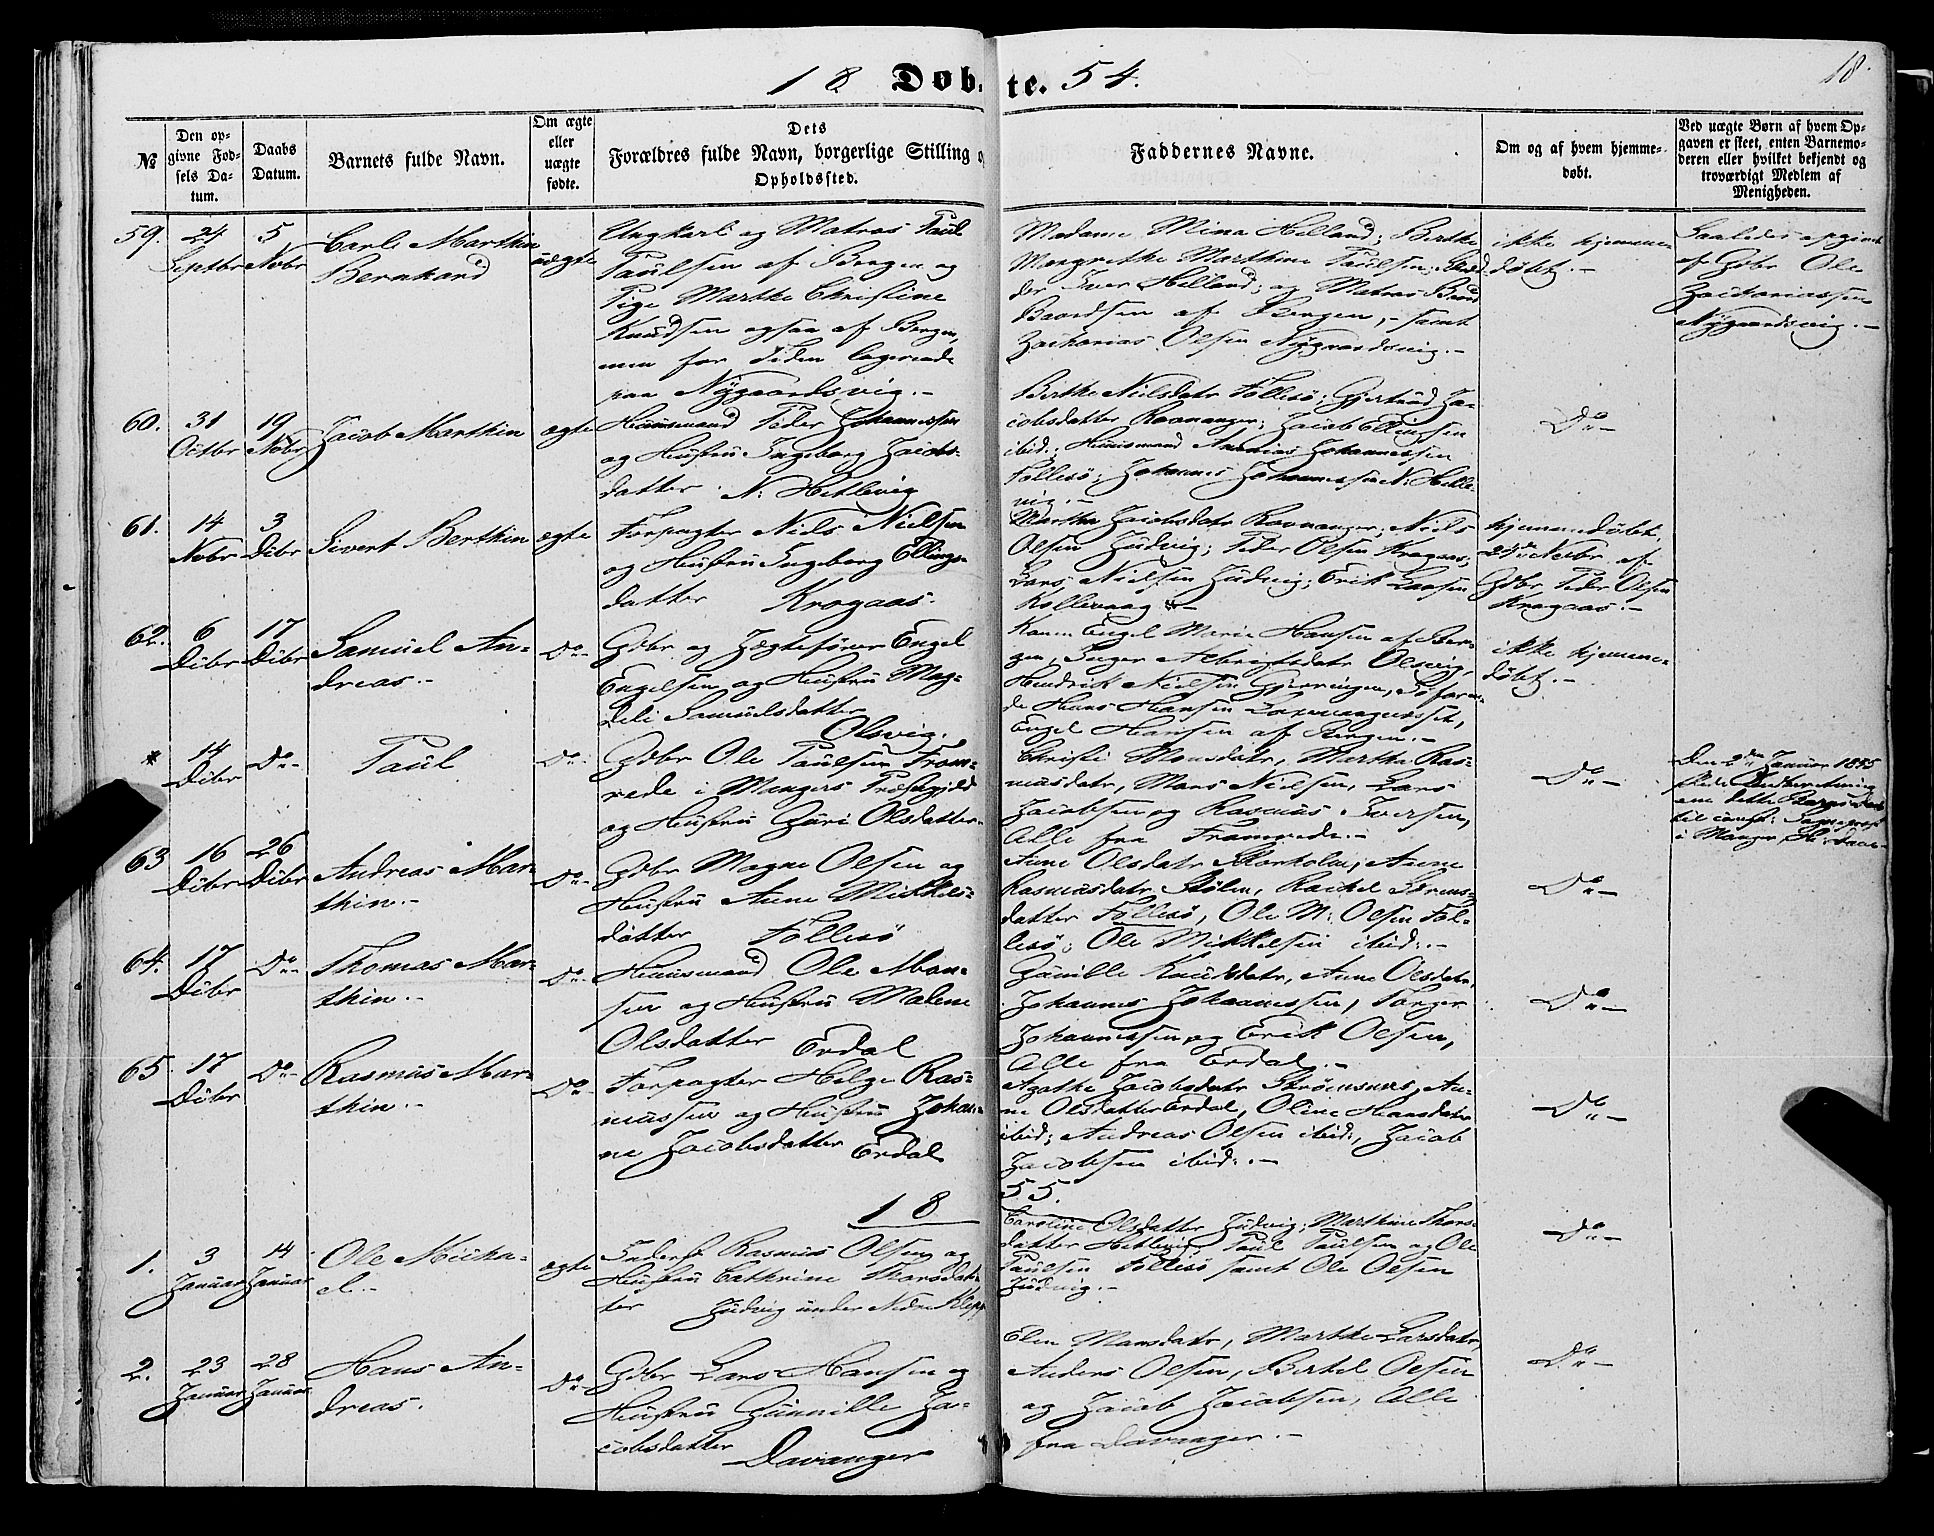 18 Døbte. 54.
18.
№
Den opgivne Fødsels Datum.
Daabs Datum.
Barnets fulde Navn.
Om ægte eller uægte fødte.
Dets Forældres fulde Navn, borgerlige Stilling og Opholdssted.
Faddernes Navne.
Om og af hvem hjemmedøbt.
Ved uægte Børn af hvem Opgaven er skeet, enten Barnemoderen eller hvilket bekjendt og troværdigt Medlem af Menigheden.
59.
24 Septbr
5 Novbr
Carl Marthin
Bernhard
uægte
Ungkarl og Matros Paul
Paulsen af Bergen og
Pige Marthe Christine
Knudsen ogsaa af Bergen,
men for Tiden logerende
paa Nygaardsvig.-
Madame Mina Helland; Berthe
Margrethe Marthine Paulsen;
Iver Helland; og Matros
Baardsen af Bergen, - samt
Zacharias Olsen Nygaardsvig.-
ikke hjemme-
døbt.-
Saaledes opgivet
af Gdbr Ole
Zachariassen
Nygaardsvig.-
60.
31 Octbr
19 Novbr
Jacob Marthin
ægte
Huusmand Peder Johannessen
og Hustru Ingeborg Jacobs-
datter. N: Hetlevig
Berthe Nielsdatr Follesø; Gjertrud Ja-
cobsdatter Ravnanger; Jacob Ellingsen
ibid.; Huusmand Ananias Johannessen
Follesø; Johannes Johannessen N: Hetle-
vig.-
Do-
61.
14 Novbr
3 Dcbr
Sivert Berthin
ægte
Forpagter Niels Nielsen
og Hustru Ingeborg Ellings-
datter Kragaas.
Martha Jacobsdatr Ravnanger; Niels
Olsen Judvig; Peder Olsen Kragaas;
Lars Nielsen Judvig; Erik Larsen
Kollevaag.-
hjemmedøbt
Novbr af
Gdbr Peder Olsen
Kragaas.-
62.
6 Dcbr
17 Dcbr
Samuel An-
dreas.-
Do-
Gdbr og Jægtefører Engel
Engelsen og Hustru Mag-
deli Samuelsdatter
Olsvig.
Kone Engel Marie Hansen af Ber-
gen, Inger Albrigtsdatr Olsvig,
Hendrik Nielsen
Hans Hansen
Engel Hansen af Bergen.-
ikke hjemme-
døbt.-
*
14 Dcbr
Do-
Paul
Do-
Gdbr Ole Paulsen From-
rede i Mangers Præstegjeld
og Hustru Guri Olsdatter.
Christi Monsdatr, Marthe Ras-
musdatr, Mons Nielsen, Lars
Jacobsen og Rasmus Iversen,
Alle fra Fromrede.-
Do-
Den 2den Januar 1855
om dette Barns Daab
til
i Manger
63
16 Dcbr
26 Dcbr
Andreas Mar-
thin.-
Do-
Gdbr Magne Olsen og
Hustru Anne Mikkels-
datter Follesø
Anne Olsdatr Storholm, Anne
Rasmusdatr Stølen, Rachel Sørens-
datter Follesø, Ole M: Olsen Fol-
lesø; Ole Mikkelsen ibid.-
Do-
64.
17 Dcbr
Do-
Thomas Mar-
thin.-
Do-
Huusmand Ole Mon-
sen og Hustru Malene
Olsdatter Erdal
Gunille Knudsdatr, Anne Olsdatr,
Johannes Johannessen, Torger
Johannessen og Erik Olsen,
Alle fra Erdal.-
Do-
65
17 Dcbr
Do-
Rasmus Mar-
thin.-
Do-
Forpagter Helge Ras-
mussen og Hustru Johan-
ne Jacobsdatter Erdal
Agathe Jacobsdatr Strømsnes, An-
ne Olsdatter Erdal, Oline Hansdatr
ibid; Andreas Olsen ibid:, Jacob
Jacobsen ibid:.-
Do-
18 55.
1.
3 Januar
14 Januar
Ole Micha-
el.-
ægte
Rasmus Olsen og
Hustru Cathrine Thorsdat-
ter Judvig under Nedre Klepp
Caroline Olsdatter Judvig; Marthine Thors-
datter Hetlevig, Paul Paulsen og Ole
Paulsen Follesø samt Ole Olsen
Judvig.-
Do-
2.
23 Januar
28 Januar
Hans An-
dreas.
Do-
Gdbr Lars Hansen og
Hustru Gunnille Ja-
cobsdatter Davanger
Elen Monsdatr, Marthe Larsdatr,
Anders Olsen, Bertel Olsen
og Jacob Jacobsen, Alle
fra Davanger.-
Do-